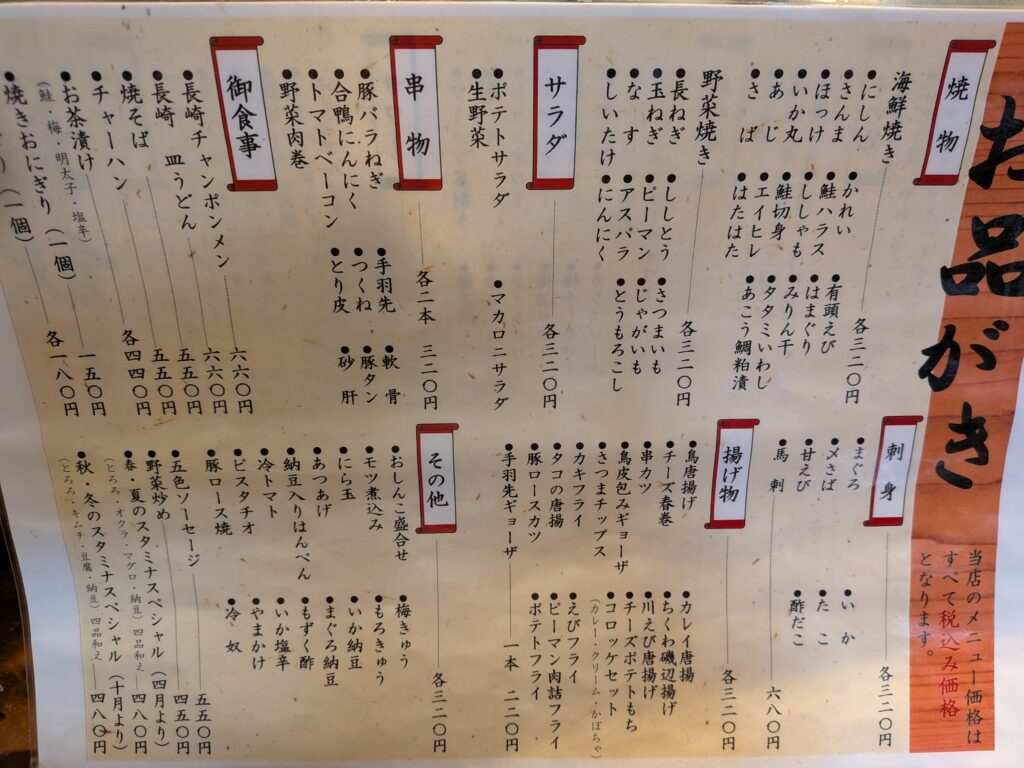 お品がき
当店のメニュー価格は
すべて税込み価格
となります。
焼物
海鮮焼き 各三二〇円
●にしん
●さんま
●ほっけ
●いか丸
●あじ
●さば
●かれい
●鮭ハラス
●ししゃも
●鮭切身
●エイヒレ
●はたはた
●有頭えび
●はまぐり
●みりん干
●タタミいわし
●あこう鯛粕漬
野菜焼き 各三二〇円
●長ねぎ
●玉ねぎ
●なす
●しいたけ
●ししとう
●ピーマン
●アスパラ
●にんにく
●さつまいも
●じゃがいも
●とうもろこし
サラダ 各三二〇円
●ポテトサラダ
●生野菜
●マカロニサラダ
串物 各二本 三二〇円
●豚バラねぎ
●合鴨にんにく
●トマトベーコン
●野菜肉巻
●手羽先
●つくね
●とり皮
●軟骨
●豚タン
●砂肝
御食事
●長崎チャンポンメン 六六〇円
●長崎皿うどん 六六〇円
●焼そば 五五〇円
●チャーハン 五五〇円
●お茶漬け 各四四〇円
(鮭・梅・明太子・塩辛)
(一個) 一五〇円
●焼きおにぎり(一個) 各一八〇円
刺身 各三二〇円
●まぐろ
●〆さば
●甘えび
●馬刺 六八〇円
●いか
●たこ
●酢だこ
揚げ物 各三二〇円
●鳥唐揚げ
●チーズ春巻
●串カツ
●鳥皮包みギョーザ
●さつまチップス
●カキフライ
●タコの唐揚
●豚ロースカツ
●手羽先ギョーザ 一本 二二〇円
●カレイ唐揚
●ちくわ磯辺揚げ
●川えび唐揚げ
●チーズポテトもち
●コロッケセット
(カレー・クリーム・かぼちゃ)
●えびフライ
●ピーマン肉詰フライ
●ポテトフライ
その他 各三二〇円
●おしんこ盛合せ
●モツ煮込み
●にら玉
●あつあげ
●納豆入りはんぺん
●冷トマト
●ピスタチオ
●豚ロース焼
●梅きゅう
●もろきゅう
●いか納豆
●まぐろ納豆
●もずく酢
●いか塩辛
●やまかけ
●冷奴
●五色ソーセージ 五五〇円
●野菜炒め 四五〇円
●春・夏のスタミナスペシャル(四月より) 四八〇円
(とろろ・オクラ・マグロ・納豆)四品和え
●秋・冬のスタミナスペシャル(十月より) 四八〇円
(とろろ・キムチ・豆腐・納豆)四品和え